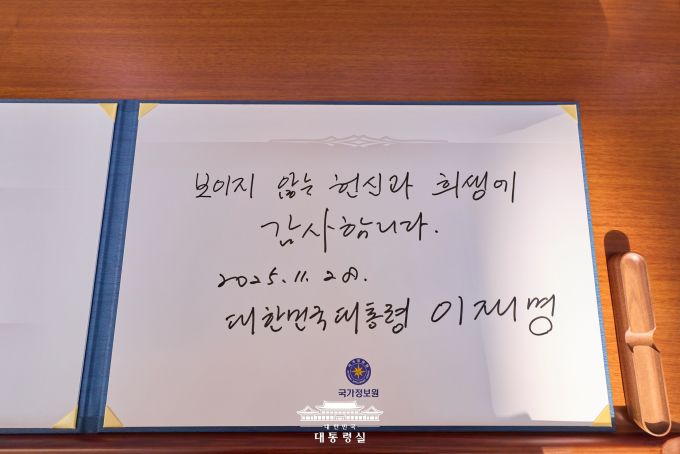 보이지 않는 헌신과 희생에
감사합니다.
2025. 11. 28.
대한민국 대통령 이재명
국가정보원
대한민국
대통령실